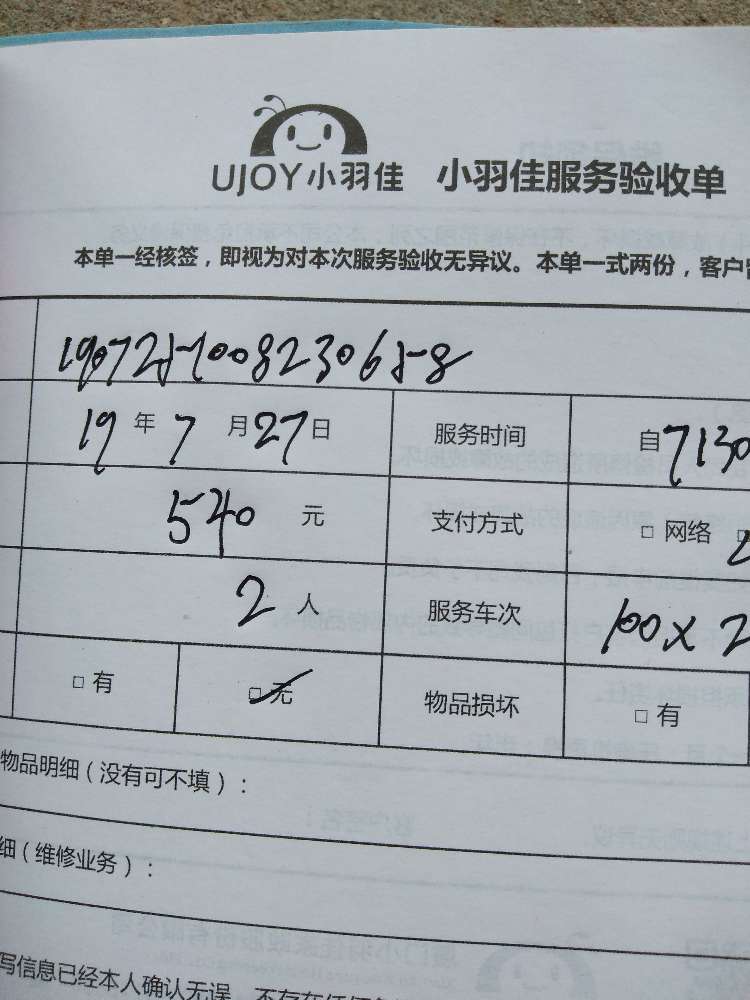 UJOY小羽佳 小羽佳服务验收单
本单一经核签，即视为对本次服务验收无异议。本单一式两份，客户
190725-100823065-8
19 年 7 月 27 日 服务时间 自 7130
540 元 支付方式 □ 网络 □
2 人 服务车次 100×2
□ 有 □ 无 物品损坏 □ 有
物品明细（没有可不填）：
细（维修业务）：
写信息已经本人确认无误，不存在任何